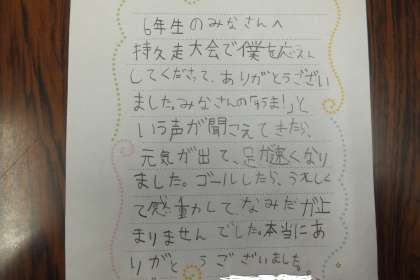 6年生のみなさんへ
持久走大会で僕を応えん
してくださって、ありがとうござい
ました。みなさんの「うま!」と
いう声が聞こえてきたら、
元気が出て、足が速くなり
ました。ゴールしたら、うれしく
て感動してなみだが止
まりませんでした。本当にあ
りがとうございました。